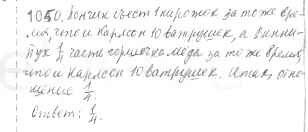 1050. Пончик съест 1 пирожок за то же вре-
мя, что и Карлсон 10 ватрушек, а Винни-
Пух 1/4 часть горшочка мёда за то же время,
что и Карлсон 10 ватрушек. Итак, отно-
шение 1/4.
Ответ: 1/4.